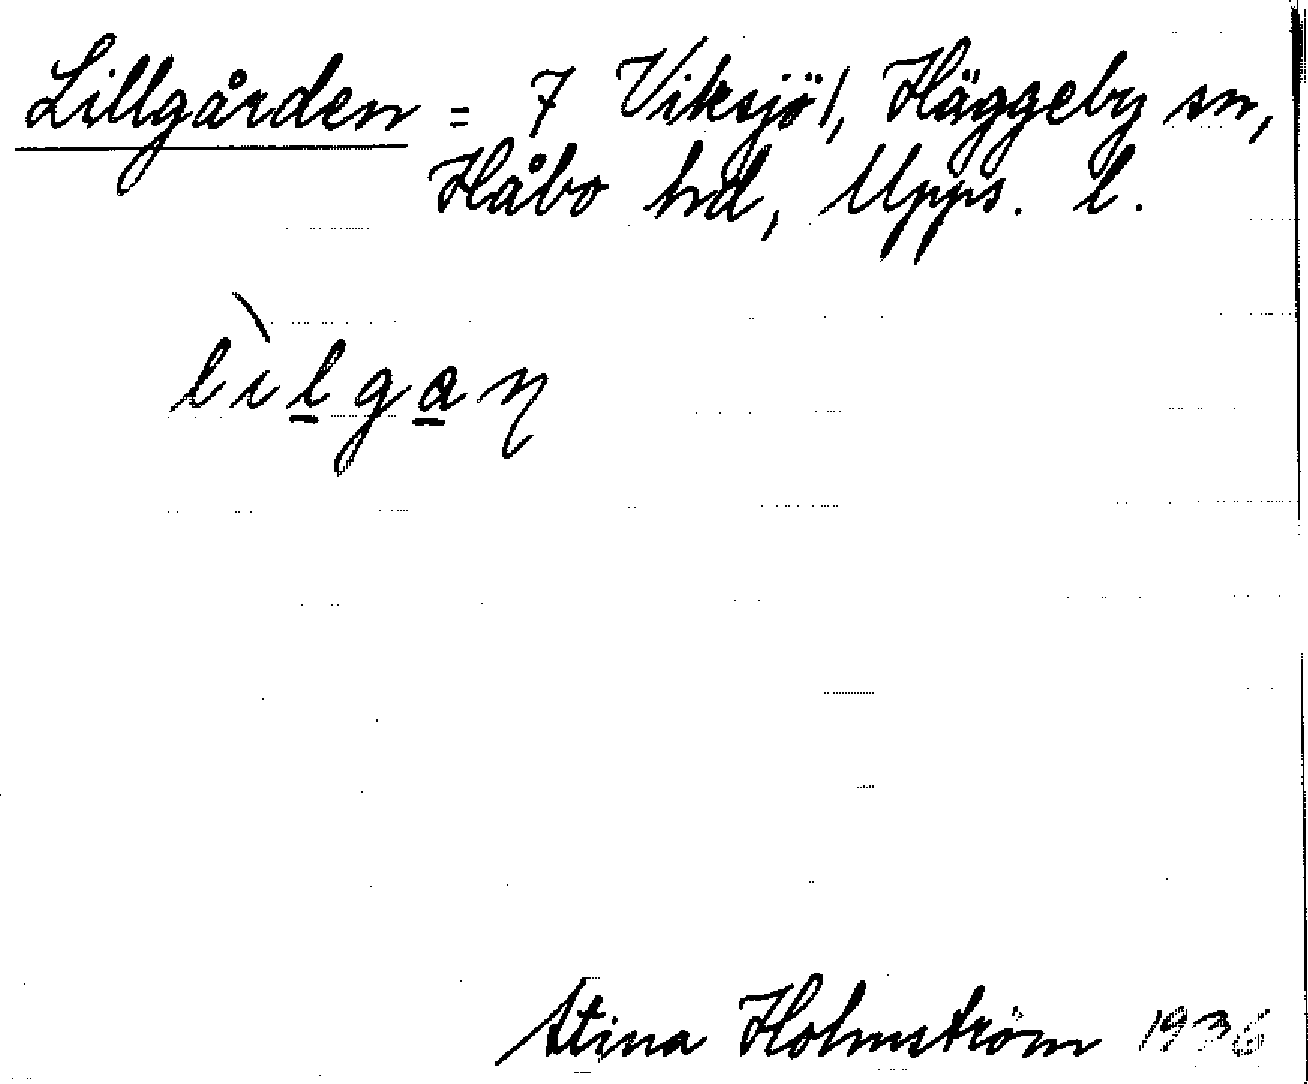 Lillgården = 7 Viksjö/, Häggeby sn,
Håbo hd, Upps. l.
lìlgaη
Stina Holmström 1936